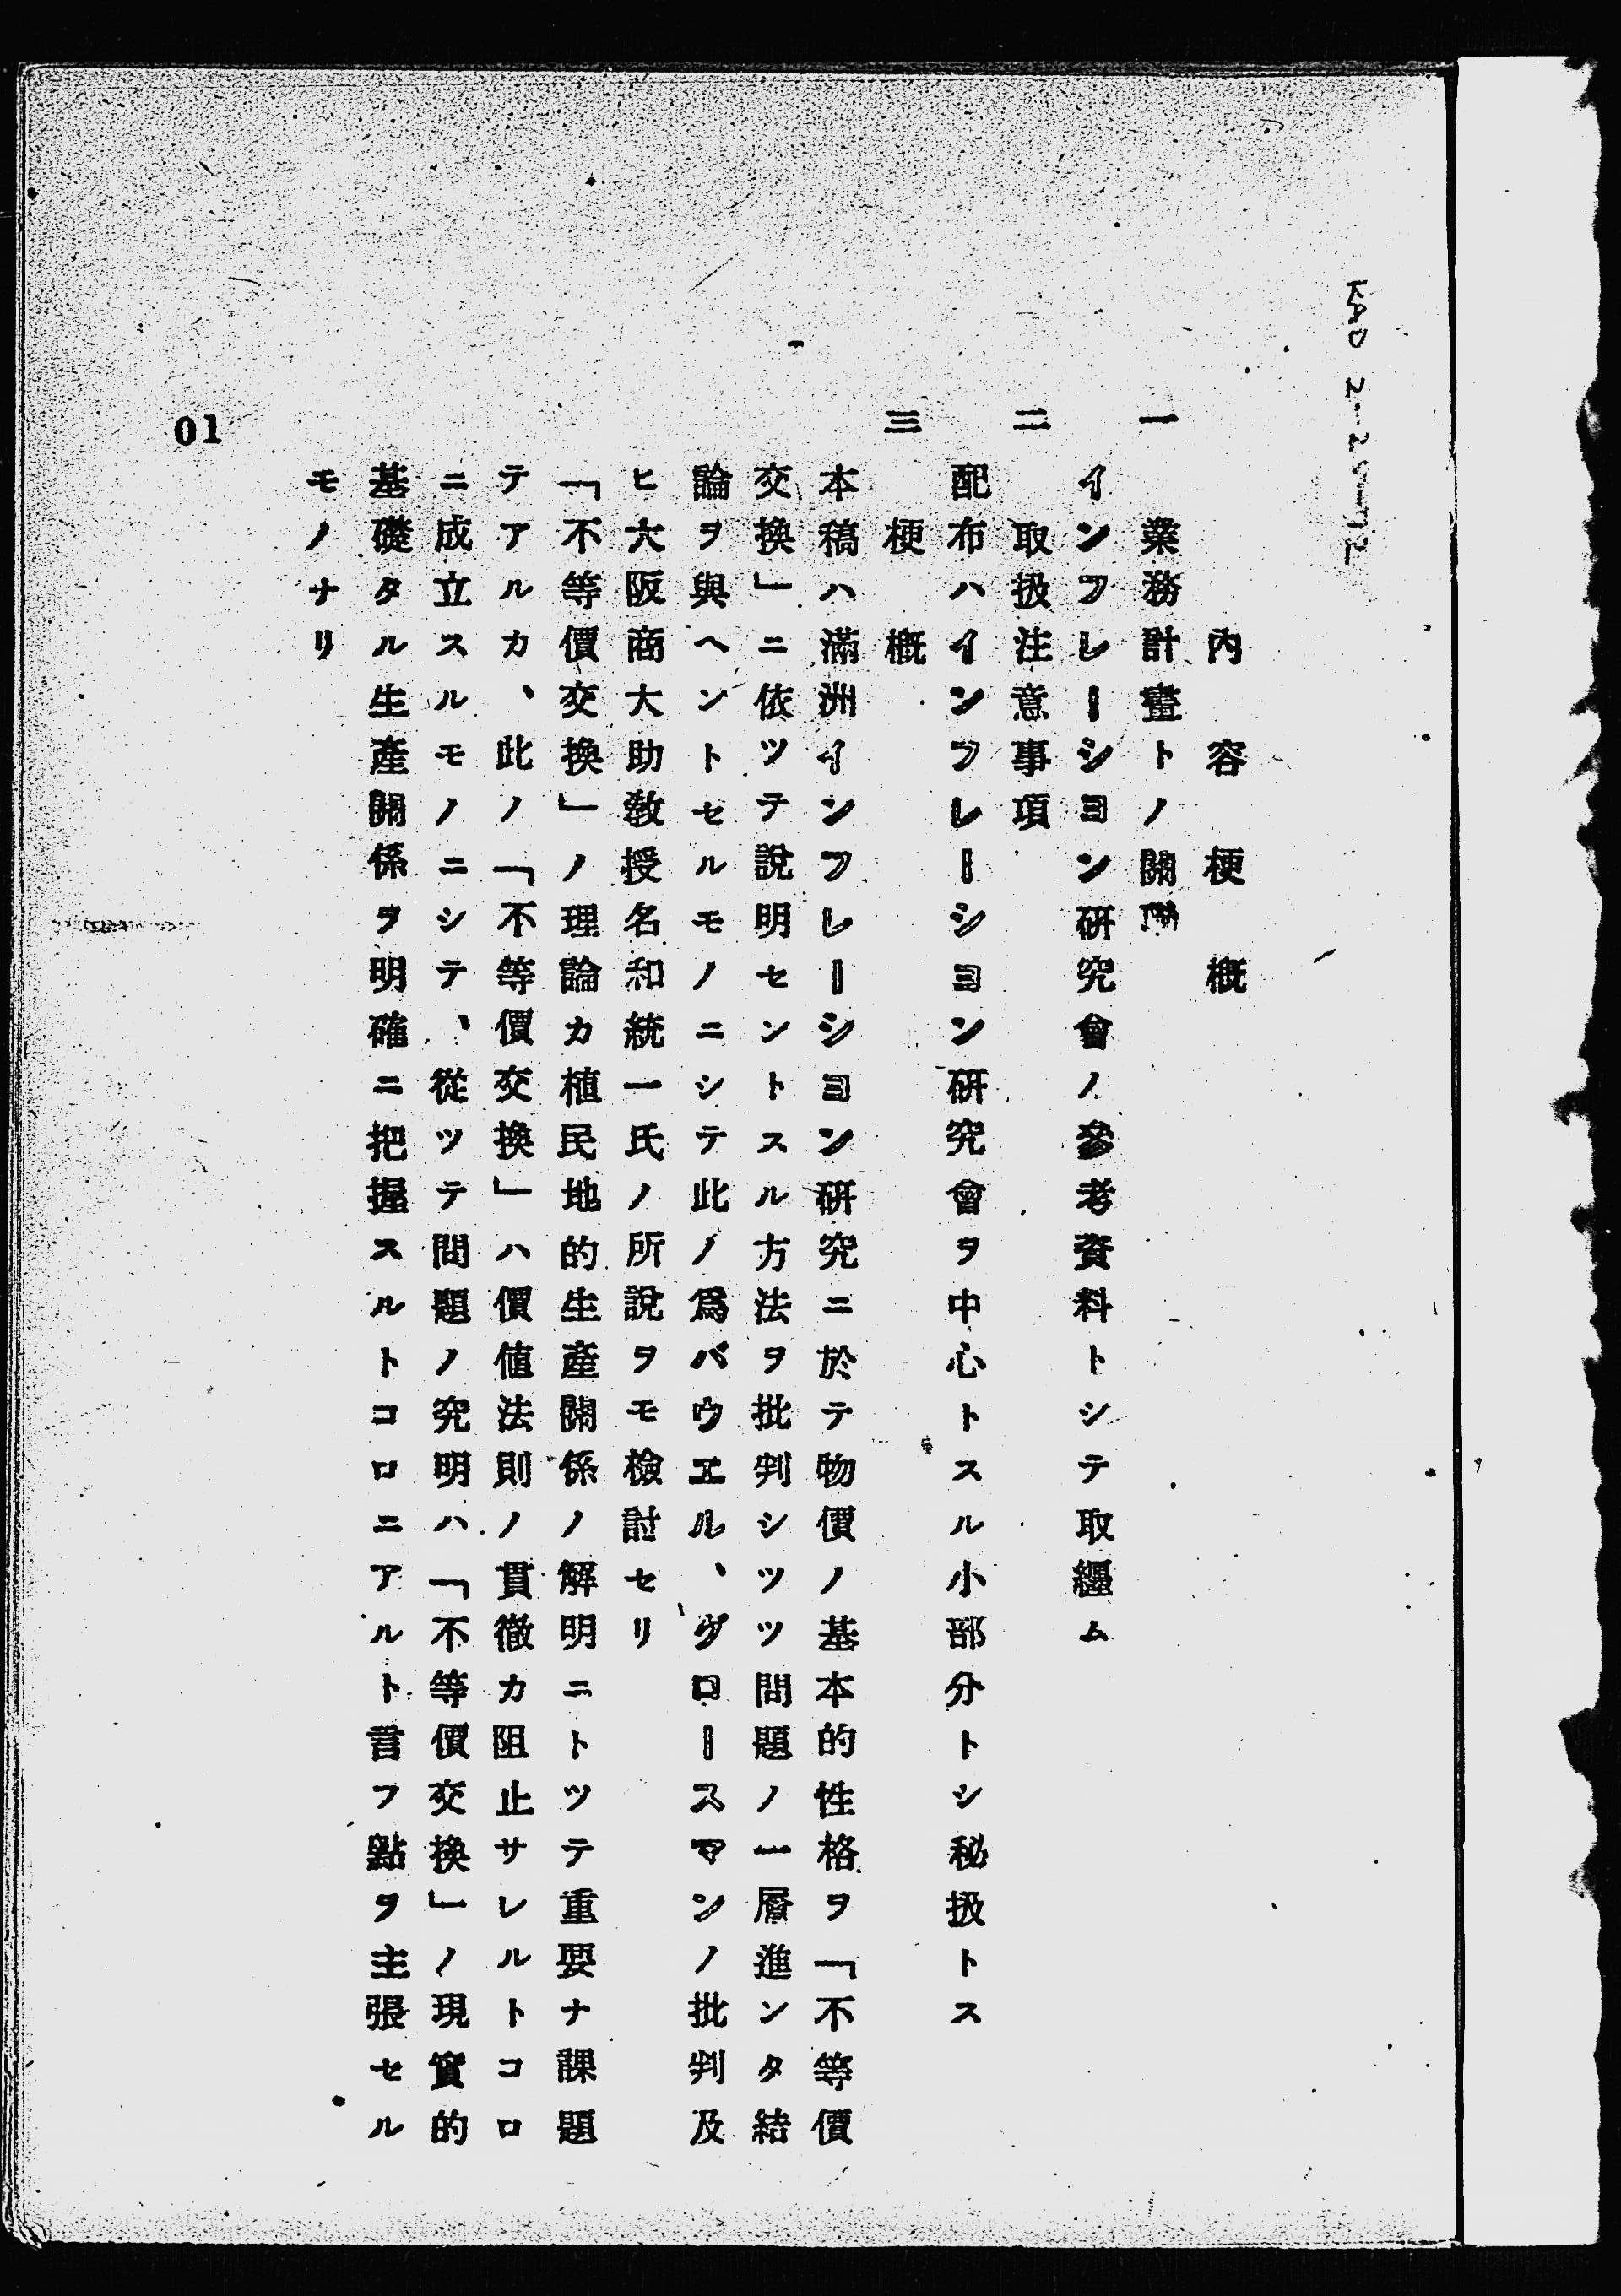 內容梗概
一 業務計畫トノ關
インフレーシヨン研究會ノ參考資料トシテ取纒ム
二 取扱注意事項
配布ハインフレーシヨン研究會ヲ中心トスル小部分トシ秘扱トス
三 梗概
本稿ハ滿洲インフレーシヨン研究ニ於テ物價ノ基本的性格ヲ「不等價
交換」ニ依ツテ說明セントスル方法ヲ批判シツツ問題ノ一層進ンタ結
論ヲ與ヘントセルモノニシテ此ノ爲バウエル、グロースマンノ批判及
ヒ大阪商大助敎授名和統一氏ノ所說ヲモ檢討セリ
「不等價交換」ノ理論カ植民地的生產關係ノ解明ニトツテ重要ナ課題
テアルカ、此ノ「不等價交換」ハ價値法則ノ貫徹カ阻止サレルトコロ
ニ成立スルモノニシテ、從ツテ問題ノ究明ハ「不等價交換」ノ現實的
基礎タル生產關係ヲ明確ニ把握スルトコロニアルト言フ點ヲ主張セル
モノナリ
01